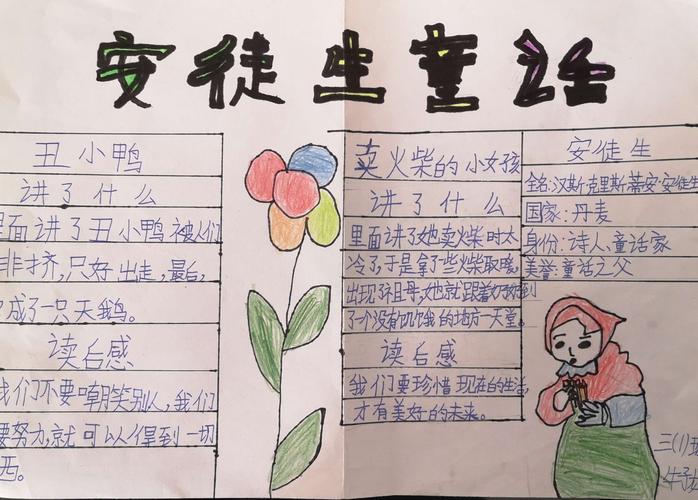 安徒生童话
丑小鸭
讲了什么
里面讲了丑小鸭被人们
排挤,只好出走,最后,
成了一只天鹅。
读后感
我们不要嘲笑别人,我们
要努力,就可以得到一切
西。
卖火柴的小女孩
讲了什么
里面讲了她卖火柴时太
冷了,于是拿了些火柴取暖,
出现了祖母,她就跟着奶奶到
了个没有饥饿的地方一天堂。
读后感
我们要珍惜现在的生活,
才有美好的未来。
安徒生
全名:汉斯·克里斯蒂安·安徒生
国家:丹麦
身份:诗人、童话家
美誉:童话之父
三(1)班
牛子